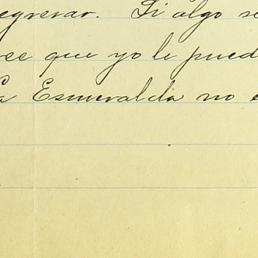 regresar. Si algo se
se que yo le pued
La Esmeralda no e